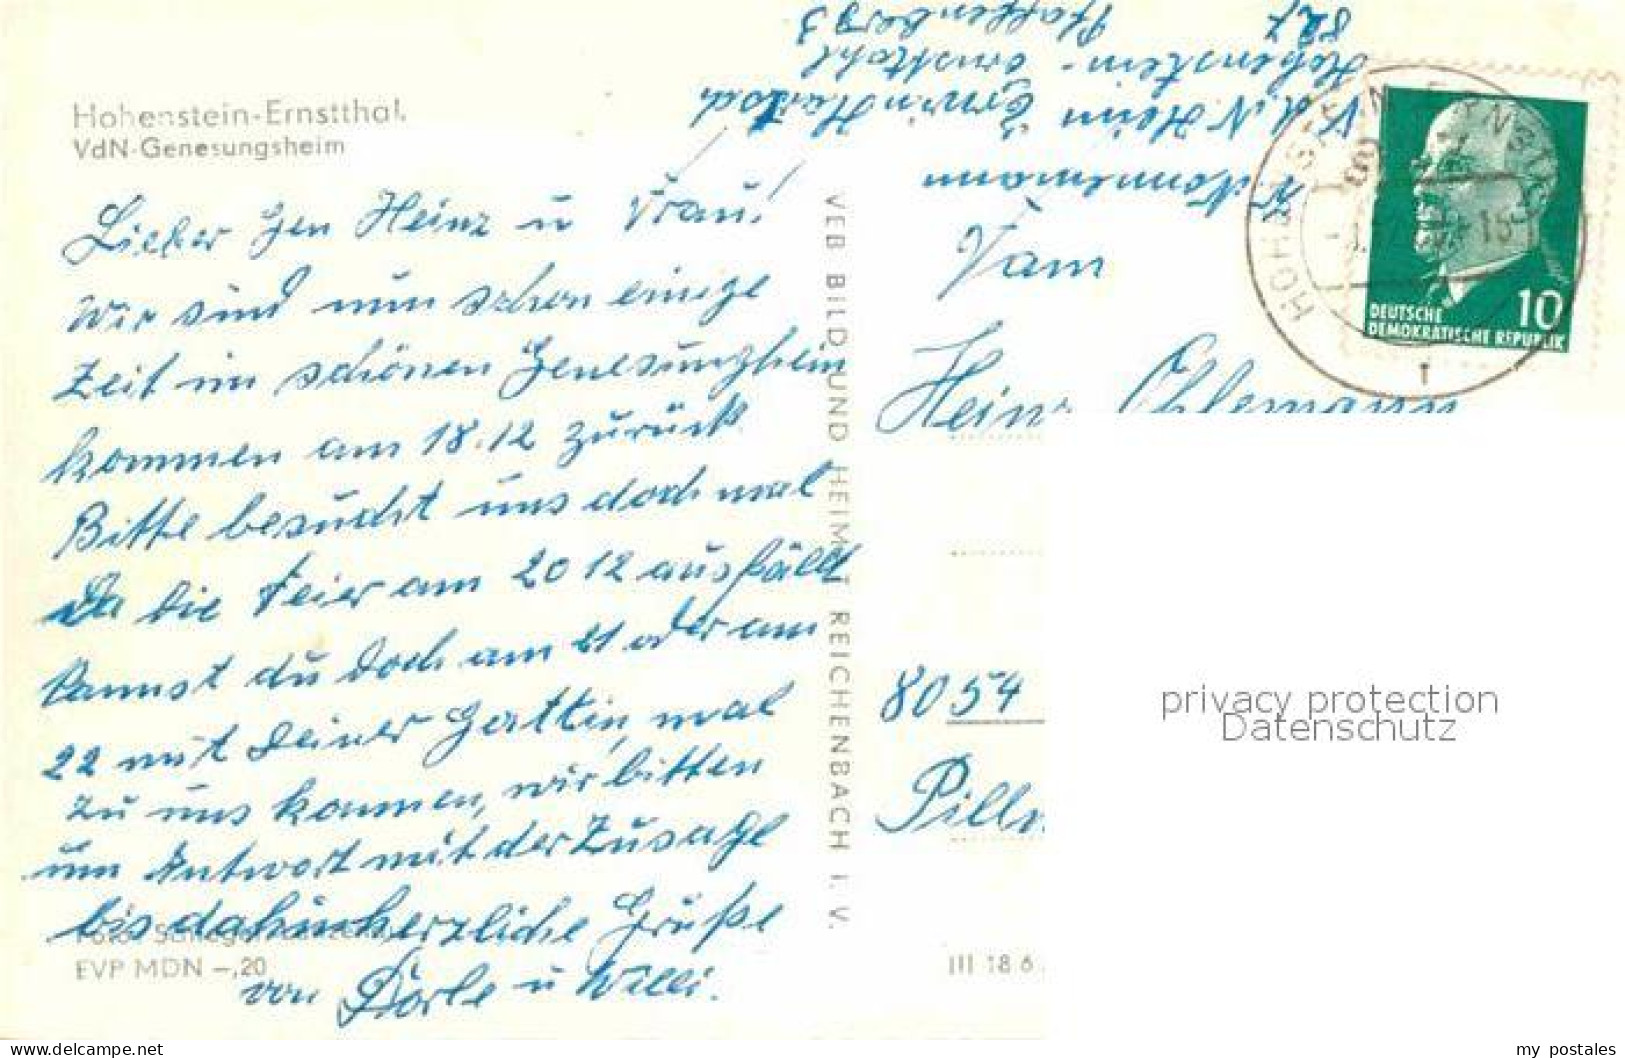 Hohenstein-Ernstthal.
VdN-Genesungsheim
Lieber Gen Heinz u Frau!
Wir sind nun schon einige
Zeit im schönen Genesungsheim
kommen am 18.12 zurück
Bitte besucht uns doch mal
Da die Feier am 20 12 ausfällt
kannst du doch am 21 oder am
22 mit Deiner Gattin, mal
zu uns kommen, wir bitten
um Antwort mit der Zusage
bis dahin herzliche Grüße
von Dorle u Willi.
EVP MDN -,20
VEB BILD UND HEIMAT REICHENBACH I. V.
III 18 6
W Nonnemann
V d N Heim Erwin Hartsch
Hohenstein-Ernstthal
Pfaffenberg 3
827
Fam
Heinz Ohlemann
8054
Pilln
HOHENSTEIN-ERNSTTHAL
15
DEUTSCHE
DEMOKRATISCHE REPUBLIK
10
privacy protection
Datenschutz
www.delcampe.net
my_postales